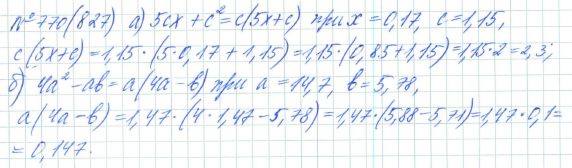 № 770(827) а) 5cx + c² = c(5x+c) при x = 0,17, c = 1,15,
c(5x+c) = 1,15 · (5·0,17 + 1,15) = 1,15 · (0,85+1,15) = 1,15·2 = 2,3;
б) 4a² - ab = a(4a - b) при a = 14,7, b = 5,78,
a(4a-b) = 1,47 · (4 · 1,47 - 5,78) = 1,47 · (5,88 - 5,71) = 1,47 · 0,1 =
= 0,147.